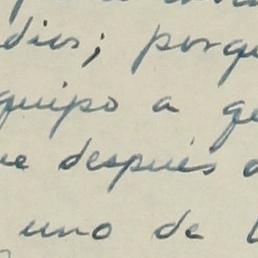 dios; porqu
quipo a ge
ue después d
uno de l